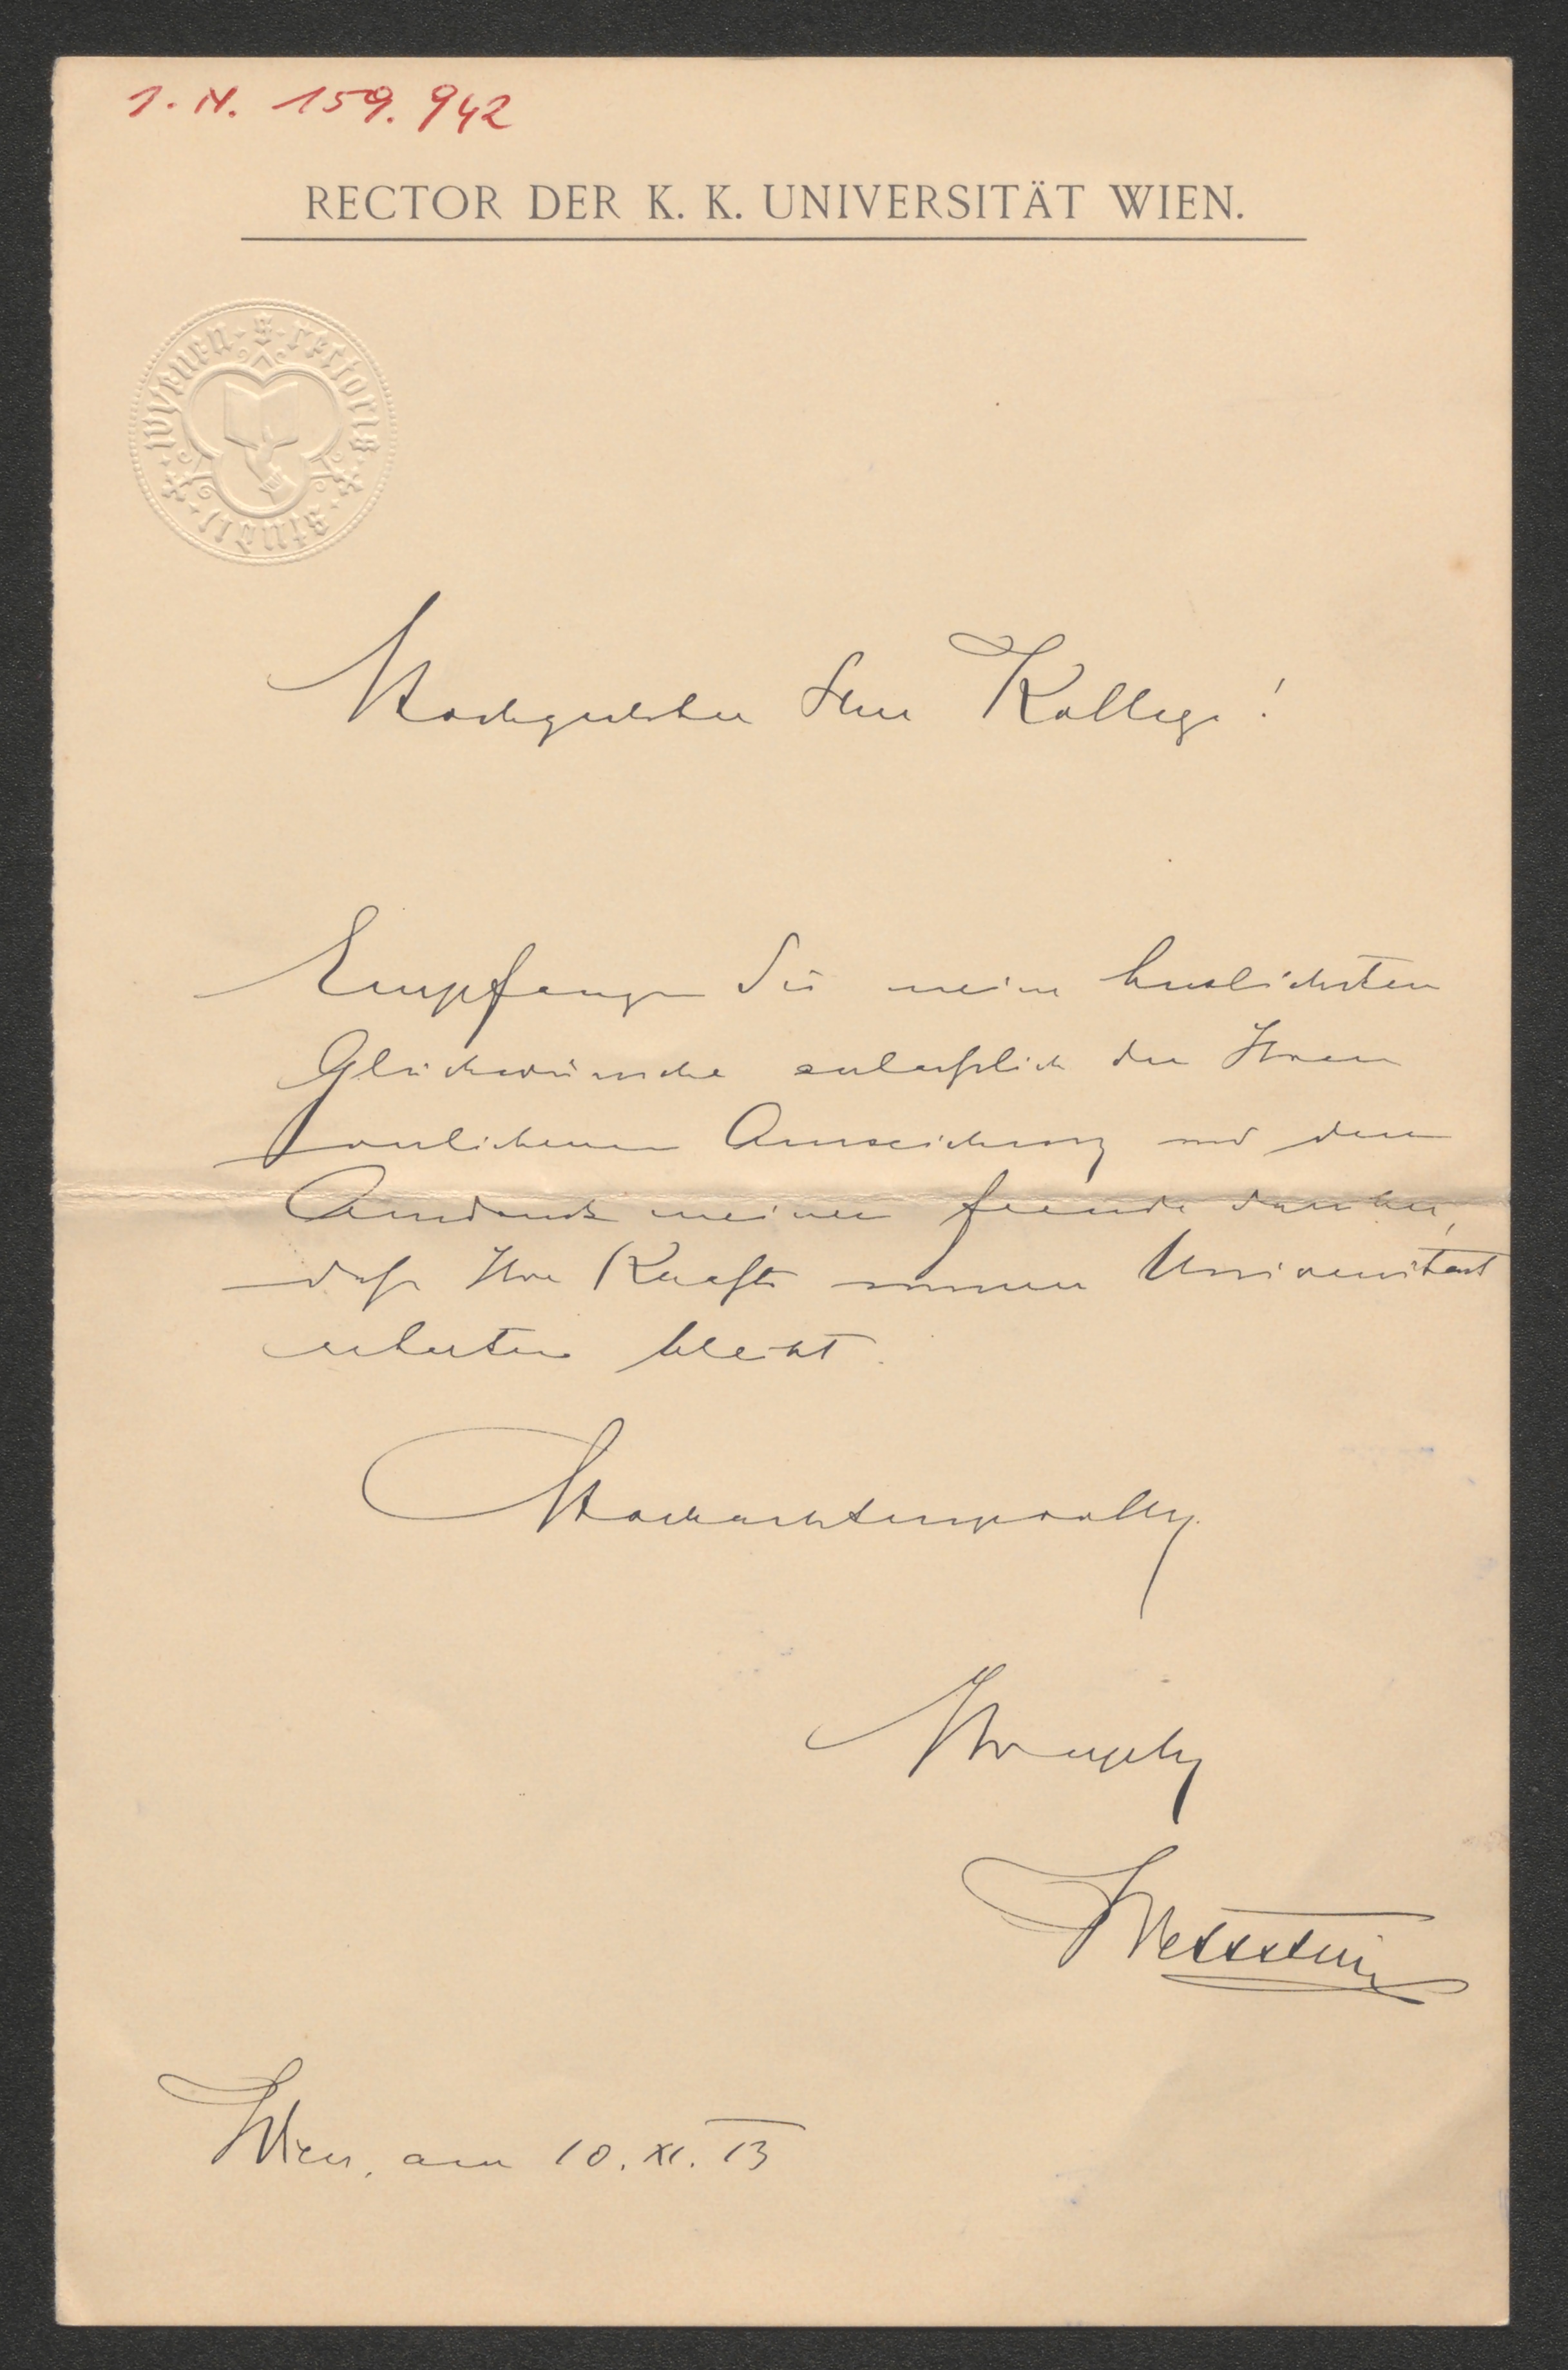 I. N. 159.942
RECTOR DER K. K. UNIVERSITÄT WIEN.
s. rectoris studii wyenen
Hochgeehrter Herr Kollege!
Empfangen Sie meine herzlichsten
Glückwünsche anlässlich der Ihnen
verliehenen Auszeichnung und den
Ausdruck meiner Freude darüber,
dass Ihre Kraft unserer Universität
erhalten bleibt.
Hochachtungsvollst
Ihr ergebener
Wettstein
Wien, am 10. XI. 13